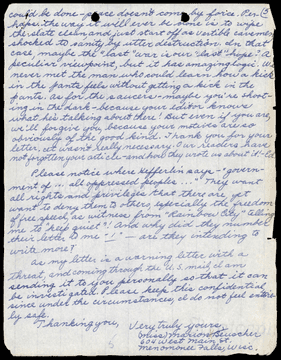 could be done - peace doesn't come by force. Per-
haps the way it will ever be done is to wipe
the slate clean, and just start off as veritable savages
shocked to sanity by utter destruction. In that
case maybe the "last" war is our "last" hope! A
peculiar viewpoint, but it has amazing logic. We
never met the man who could learn how a kick
in the pants feels without getting a kick in the
pants. As for the saucers - maybe you're shoot-
ing in the dark - because your editor knows
what he's talking about there! But even if you are,
we'll forgive you, because your motives are so
obviously of the good kind. Thank you for your
letter, it wasn't really necessary. Our readers have
not forgotten your article - and how they wrote us about it! - Ed.
Please notice where Hefferlin says - "govern-
ment of "... all oppressed peoples...". They want
all rights and privileges that there are yet
want to deny them to others, especially the freedom
of free speech, as witness from "Rainbow City" - telling
me to "keep quiet"! And why did they number
their letter to me "1" - are they intending to
write more?
As my letter is a warning letter with a
threat, and coming through the U.S. mail, I am
sending it to you personally so that it can
be investigated. Please keep this confidential
since under the circumstances, I do not feel entire-
ly safe.
Thanking you,
Very truly yours,
(Miss) Marion
604 West Main St.
Menomonee Falls, Wisc.